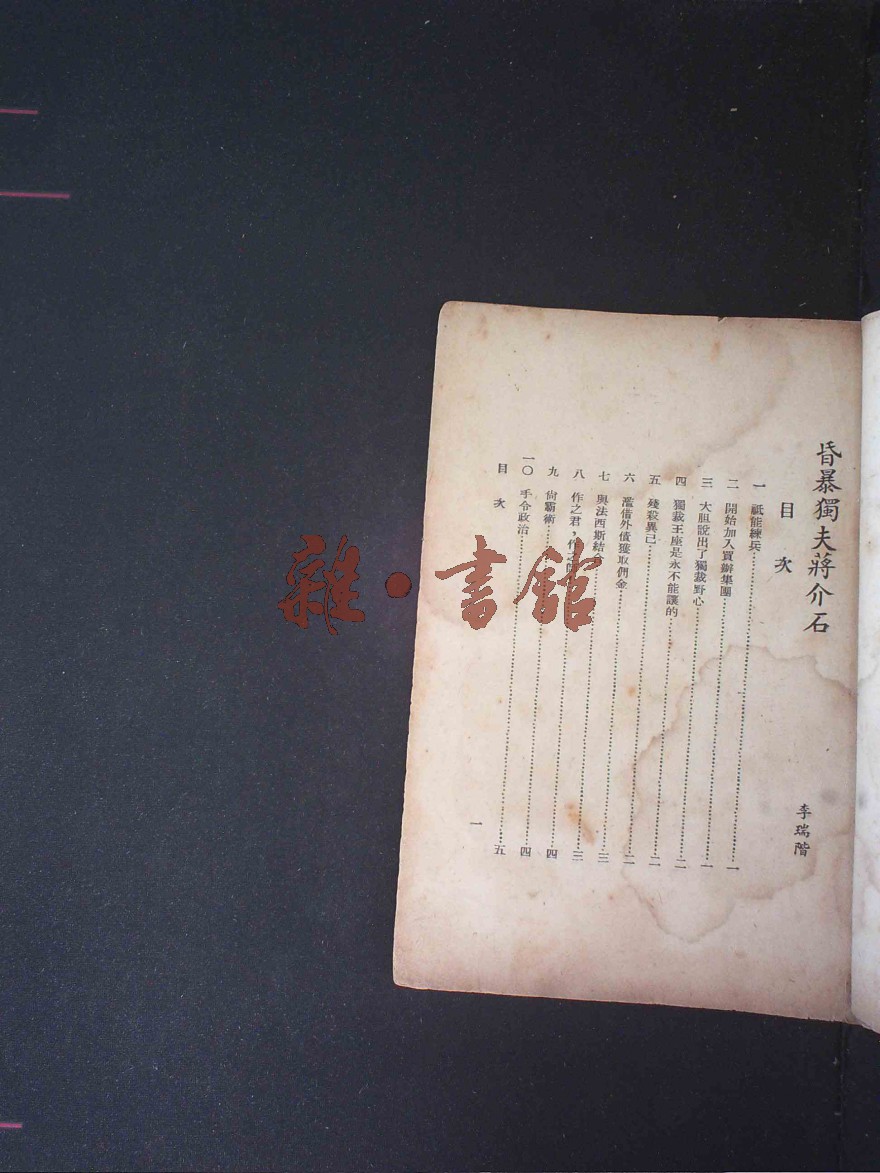 昏暴獨夫蔣介石
李瑞階
目次
一 祇能練兵……一
二 開始加入買辦集團……一
三 大胆說出了獨裁野心……二
四 獨裁王座是永不能讓的……二
五 殘殺異己……二
六 濫借外債獲取佣金……三
七 與法西斯結合……三
八 作之君，作之……四
九 尚霸術……四
一〇 手令政治……五
目次
一
雜·書館